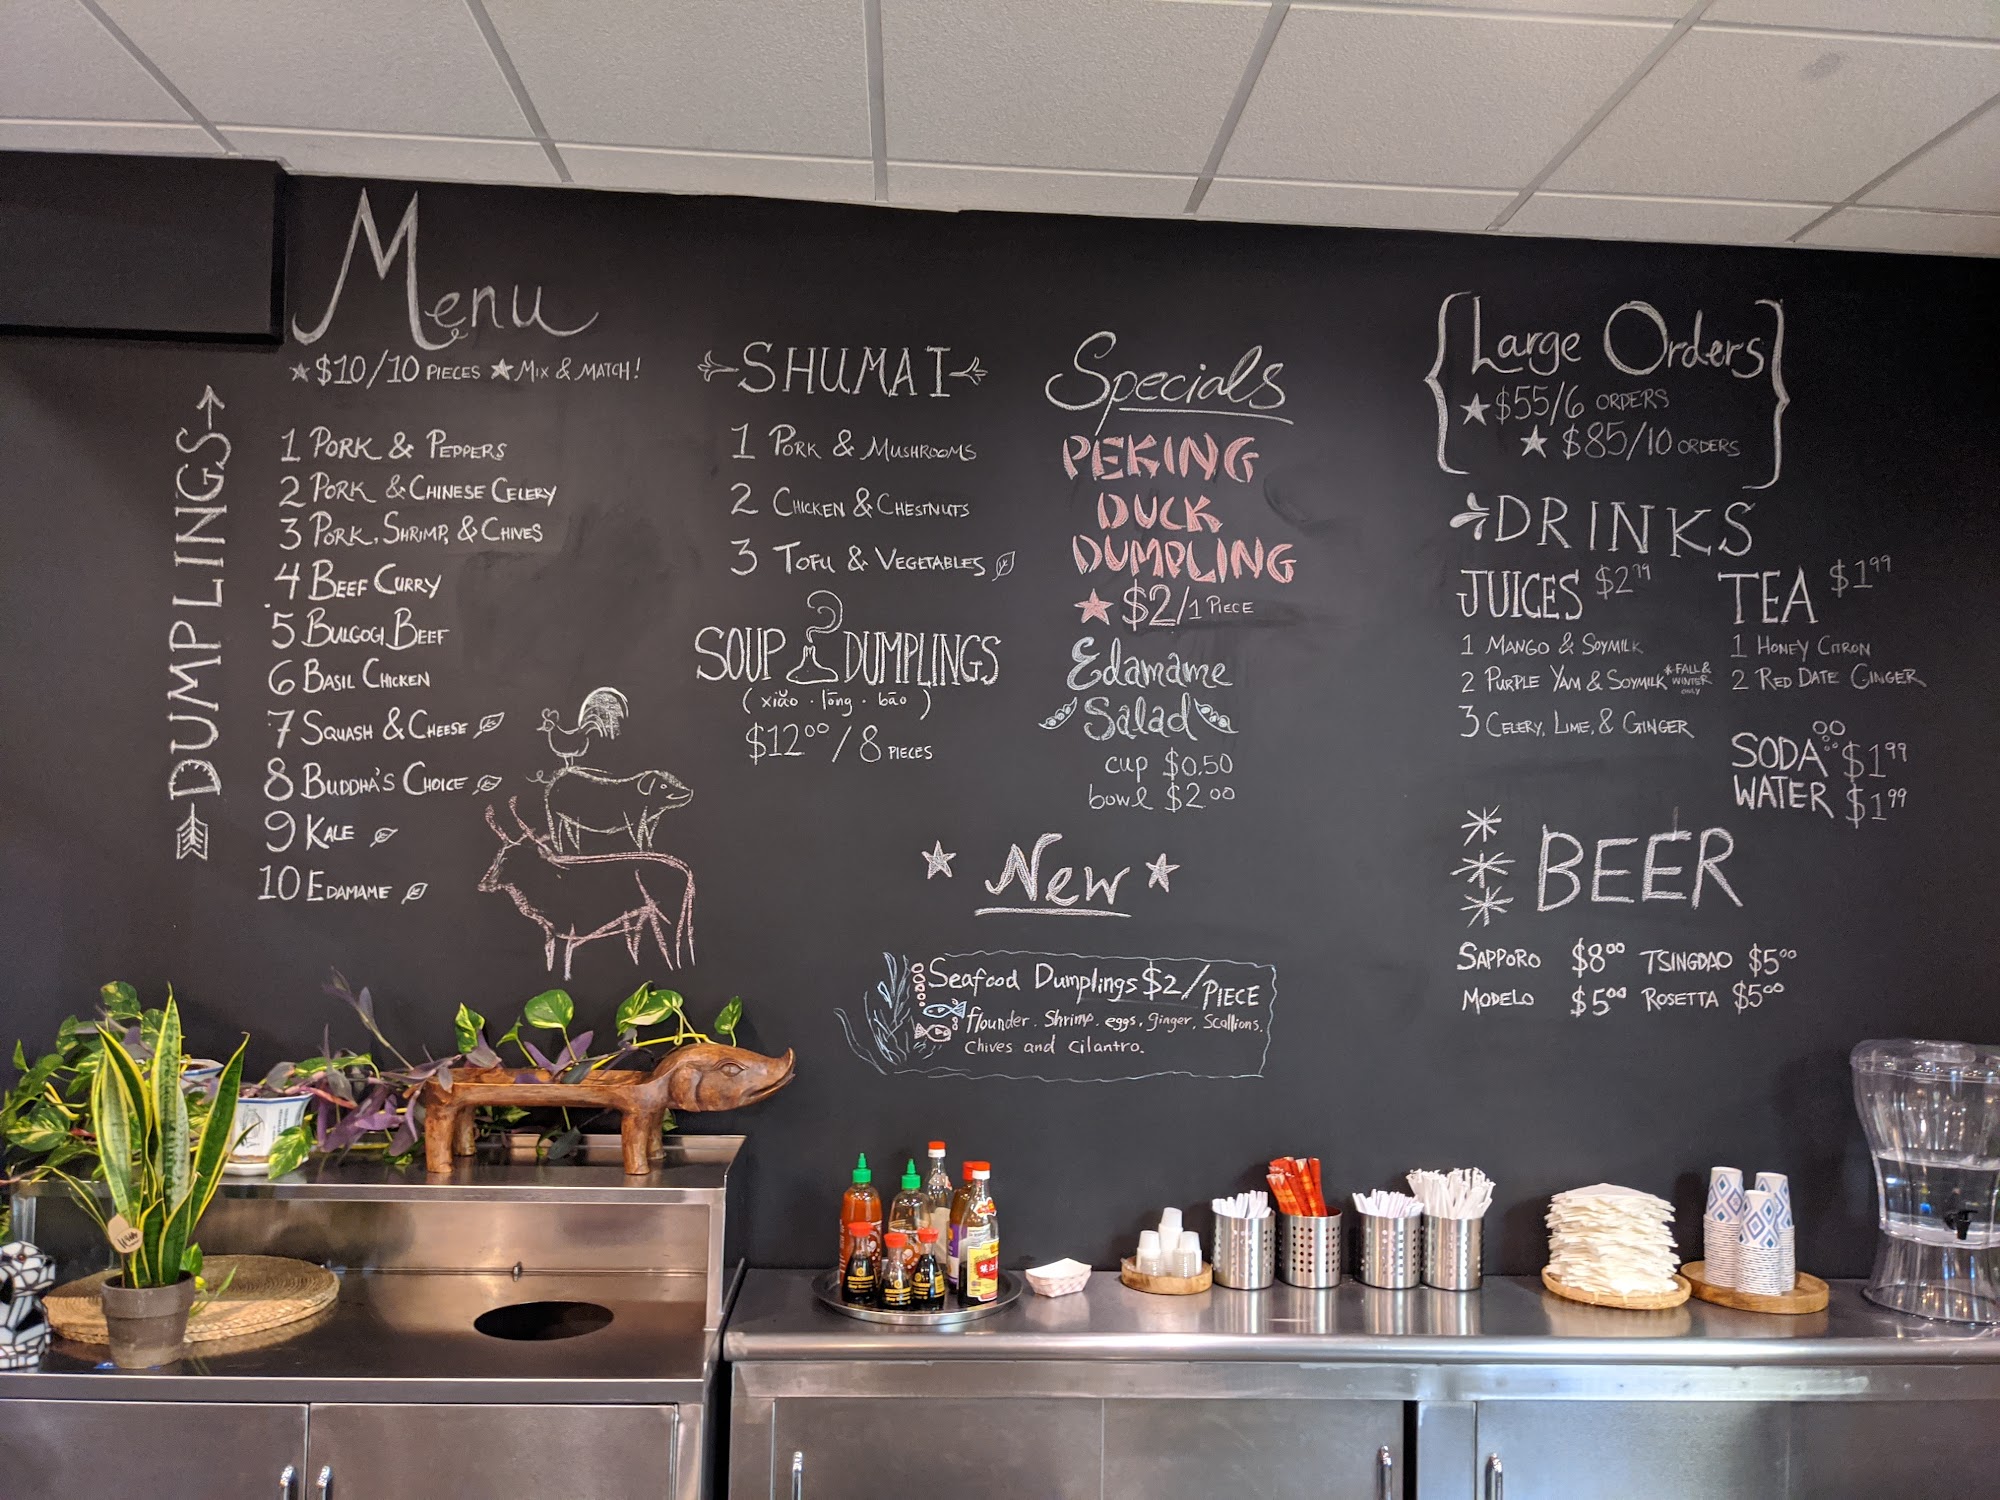 Menu
$10/10 PIECES MIX & MATCH!
DUMPLINGS
1 PORK & PEPPERS
2 PORK & CHINESE CELERY
3 PORK, SHRIMP, & CHIVES
4 BEEF CURRY
5 BULGOGI BEEF
6 BASIL CHICKEN
7 SQUASH & CHEESE
8 BUDDHA'S CHOICE
9 KALE
10 EDAMAME
SHUMAI
1 PORK & MUSHROOMS
2 CHICKEN & CHESTNUTS
3 TOFU & VEGETABLES
SOUP DUMPLINGS
(xiǎo · lóng · bāo)
$12.00/8 PIECES
Specials
PEKING
DUCK
DUMPLING
$2/1 PIECE
Edamame
Salad
cup $0.50
bowl $2.00
New
Seafood Dumplings $2/PIECE
flounder. Shrimp. eggs. ginger. Scallions.
Chives and Cilantro.
Large Orders
$55/6 ORDERS
$85/10 ORDERS
DRINKS
JUICES $2.99
1 MANGO & SOYMILK
2 PURPLE YAM & SOYMILK *FALL & WINTER ONLY
3 CELERY, LIME, & GINGER
TEA $1.99
1 HONEY CITRON
2 RED DATE GINGER
SODA $1.99
WATER $1.99
BEER
SAPPORO $8.00 TSINGDAO $5.00
MODELO $5.00 ROSETTA $5.00